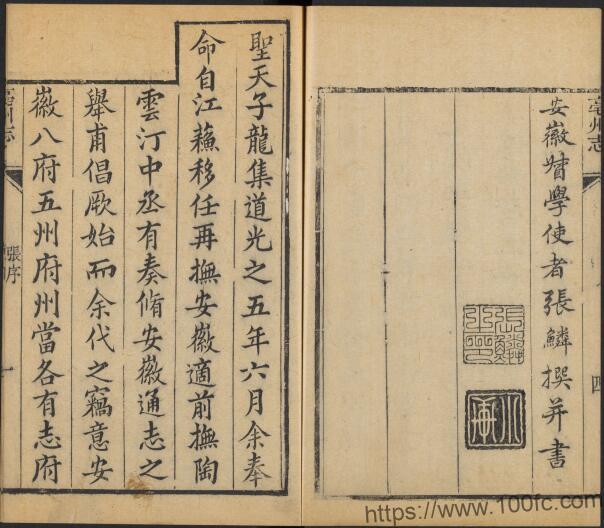 亳州志
四
安徽督學使者張鱗撰并書
張鱗之印
聖天子龍集道光之五年六月余奉
命自江蘓移任再撫安徽適前撫陶
雲汀中丞有奏脩安徽通志之
舉甫倡厥始而余代之竊意安
徽八府五州府州當各有志府
亳州志
張序
一
https://www.100fc.com